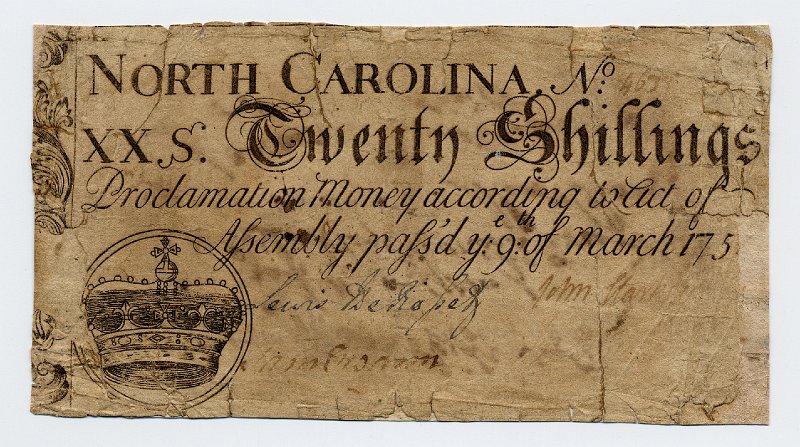 NORTH CAROLINA, No. 462
XX,S. Twenty Shillings
Proclamation Money according to Act of
Assembly pass'd ye. 9th. of March 175
Lewis DeRosset
John Starkey